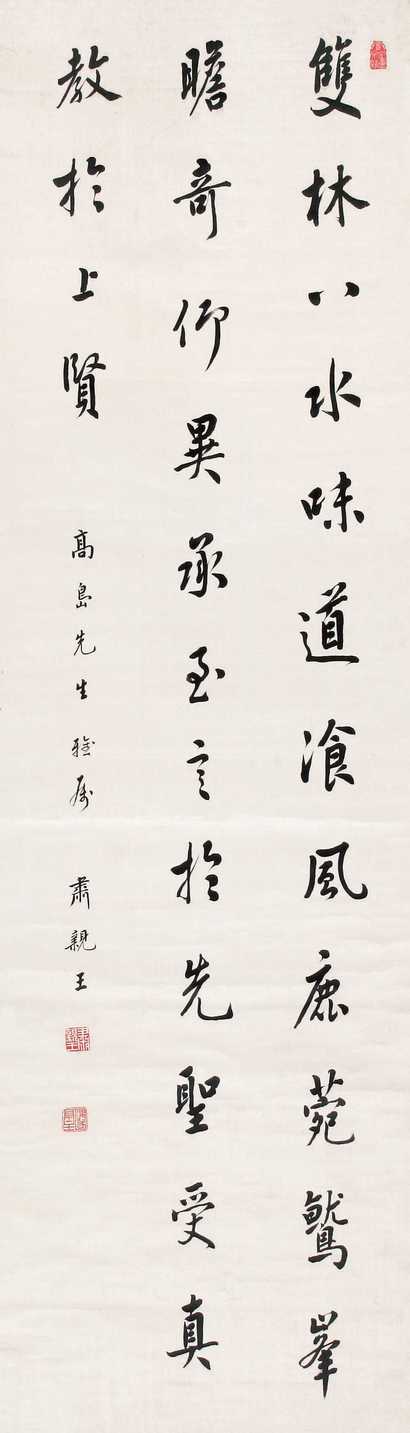 雙林八水味道飡風鹿菀鷲峯
瞻奇仰異承至言於先聖受真
教於上賢
高島先生雅属
肅親王